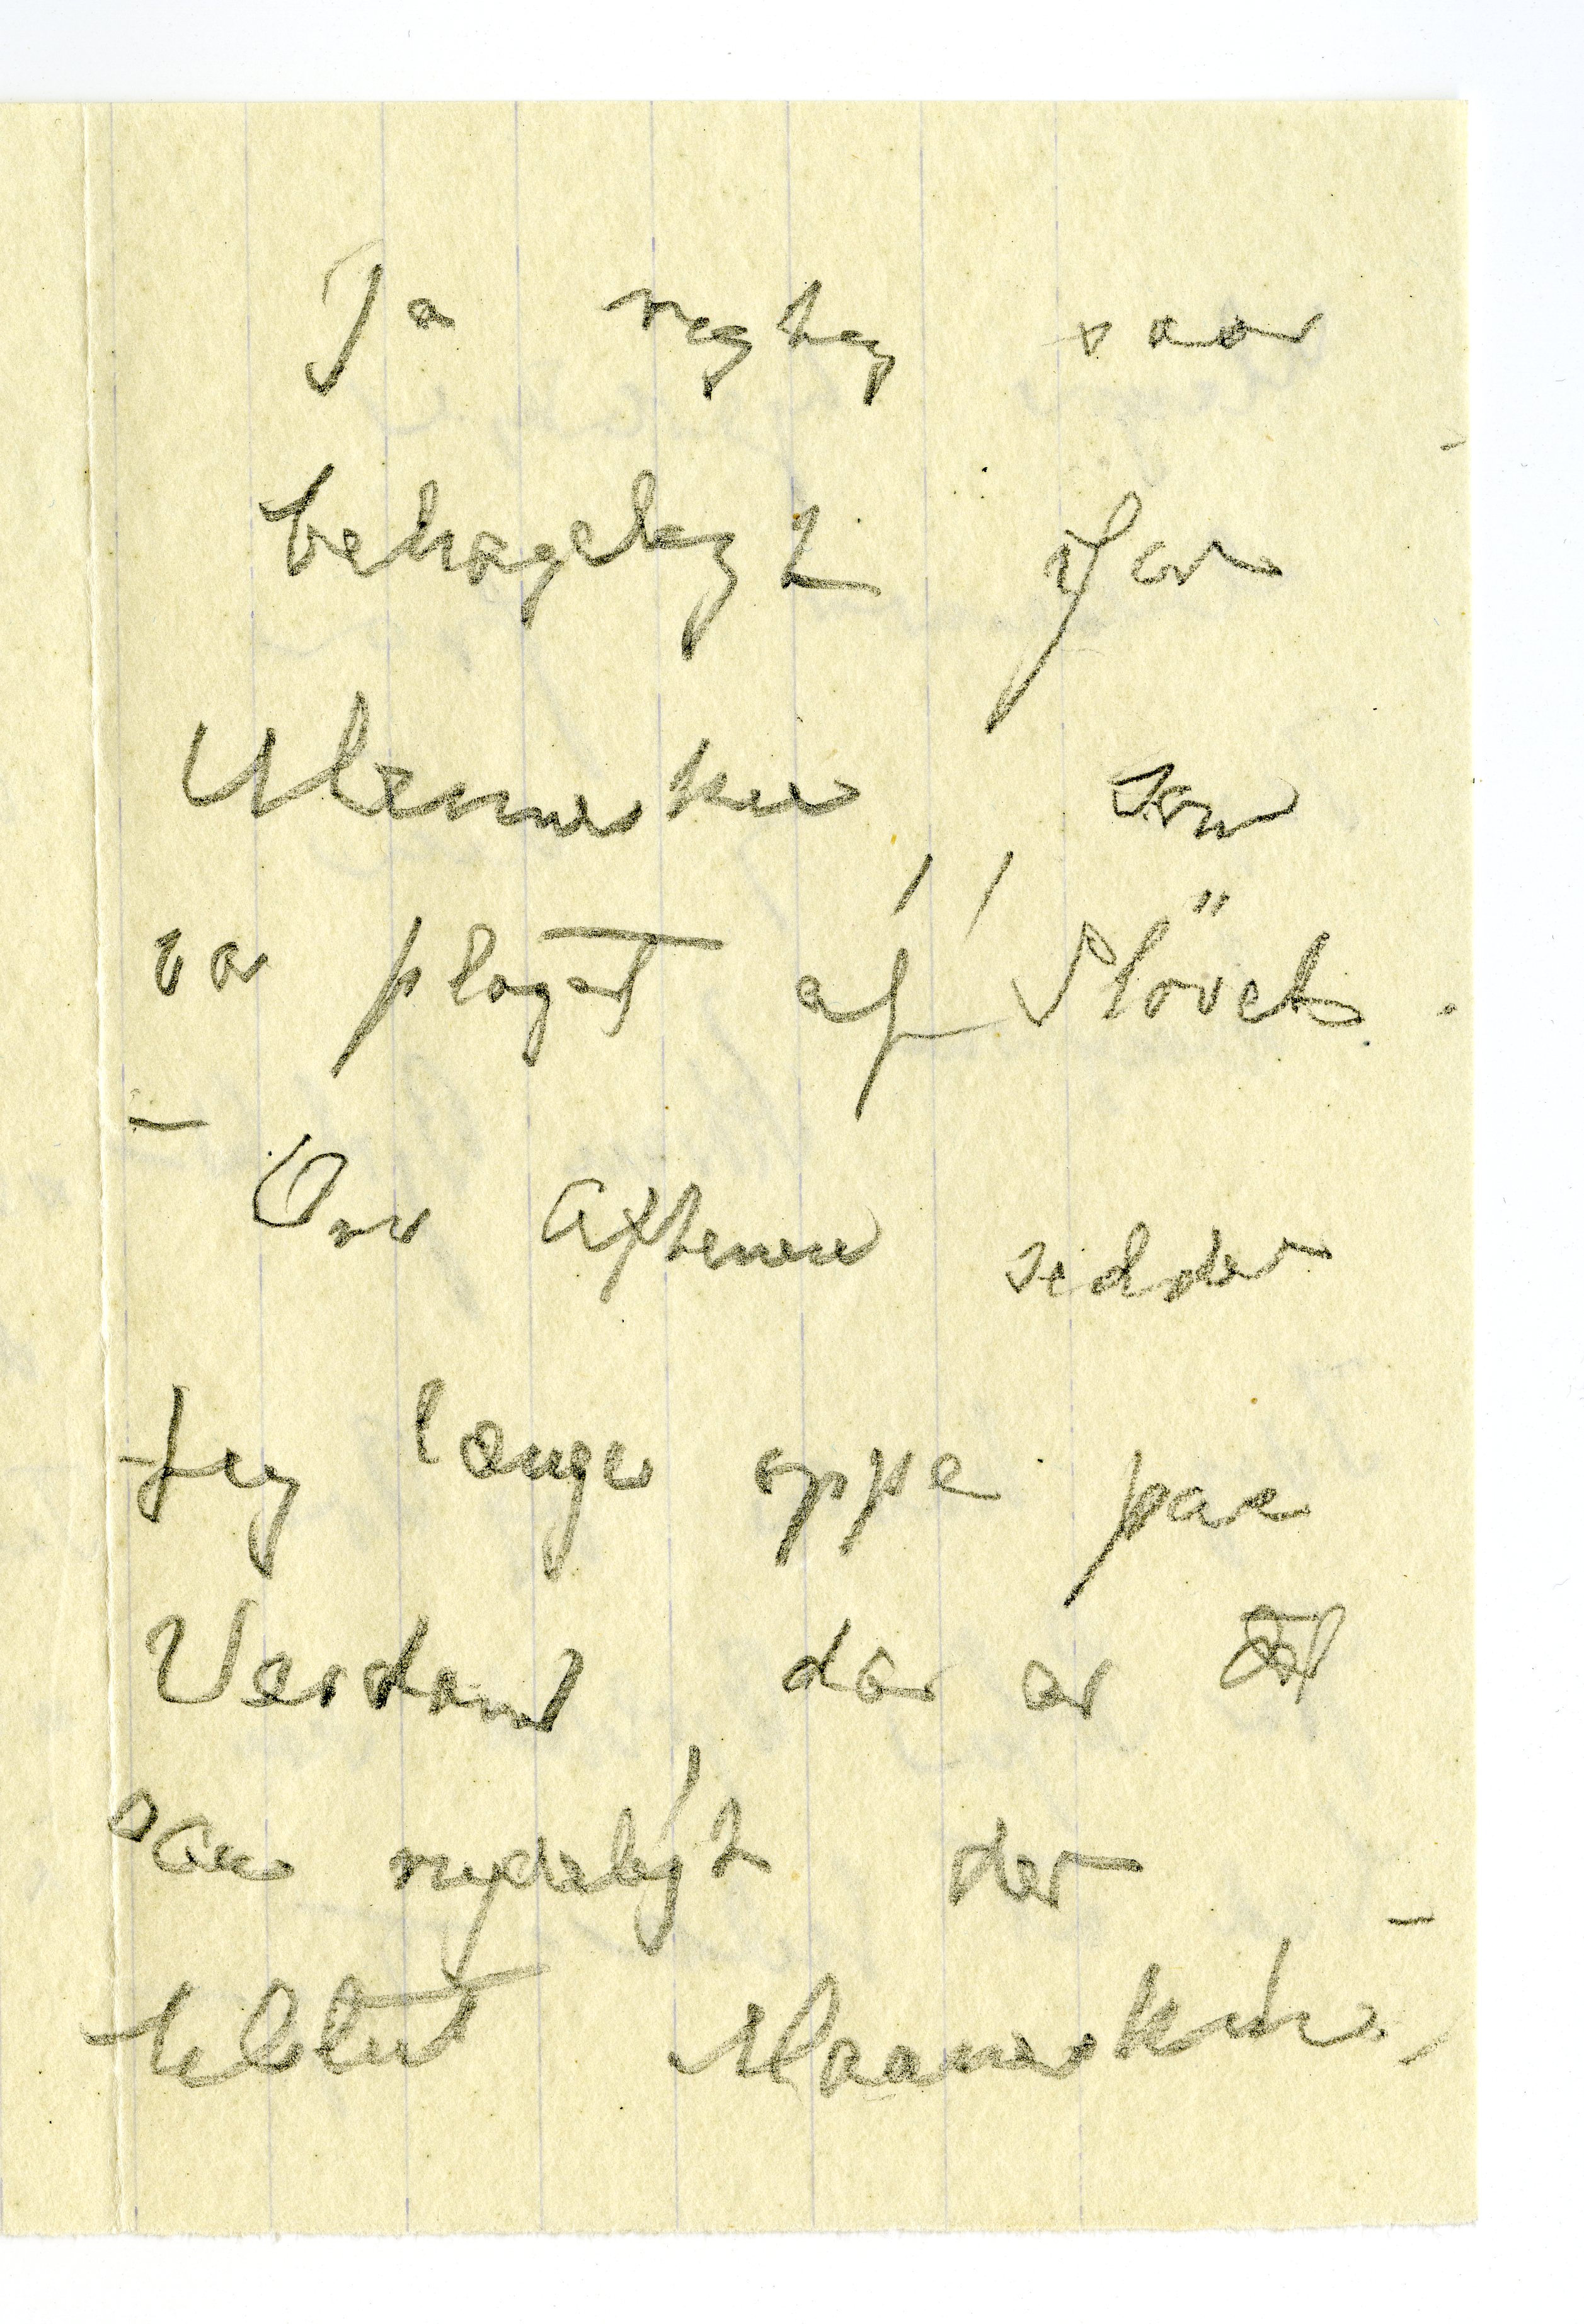 Ja rigtig var
behageligt for
Mennesker som
var plaget af Støvet.
– Om Aftenen sidder
Jeg længe oppe paa
Verdænd der er
saa nydeligt der
klædt Maaneskin,